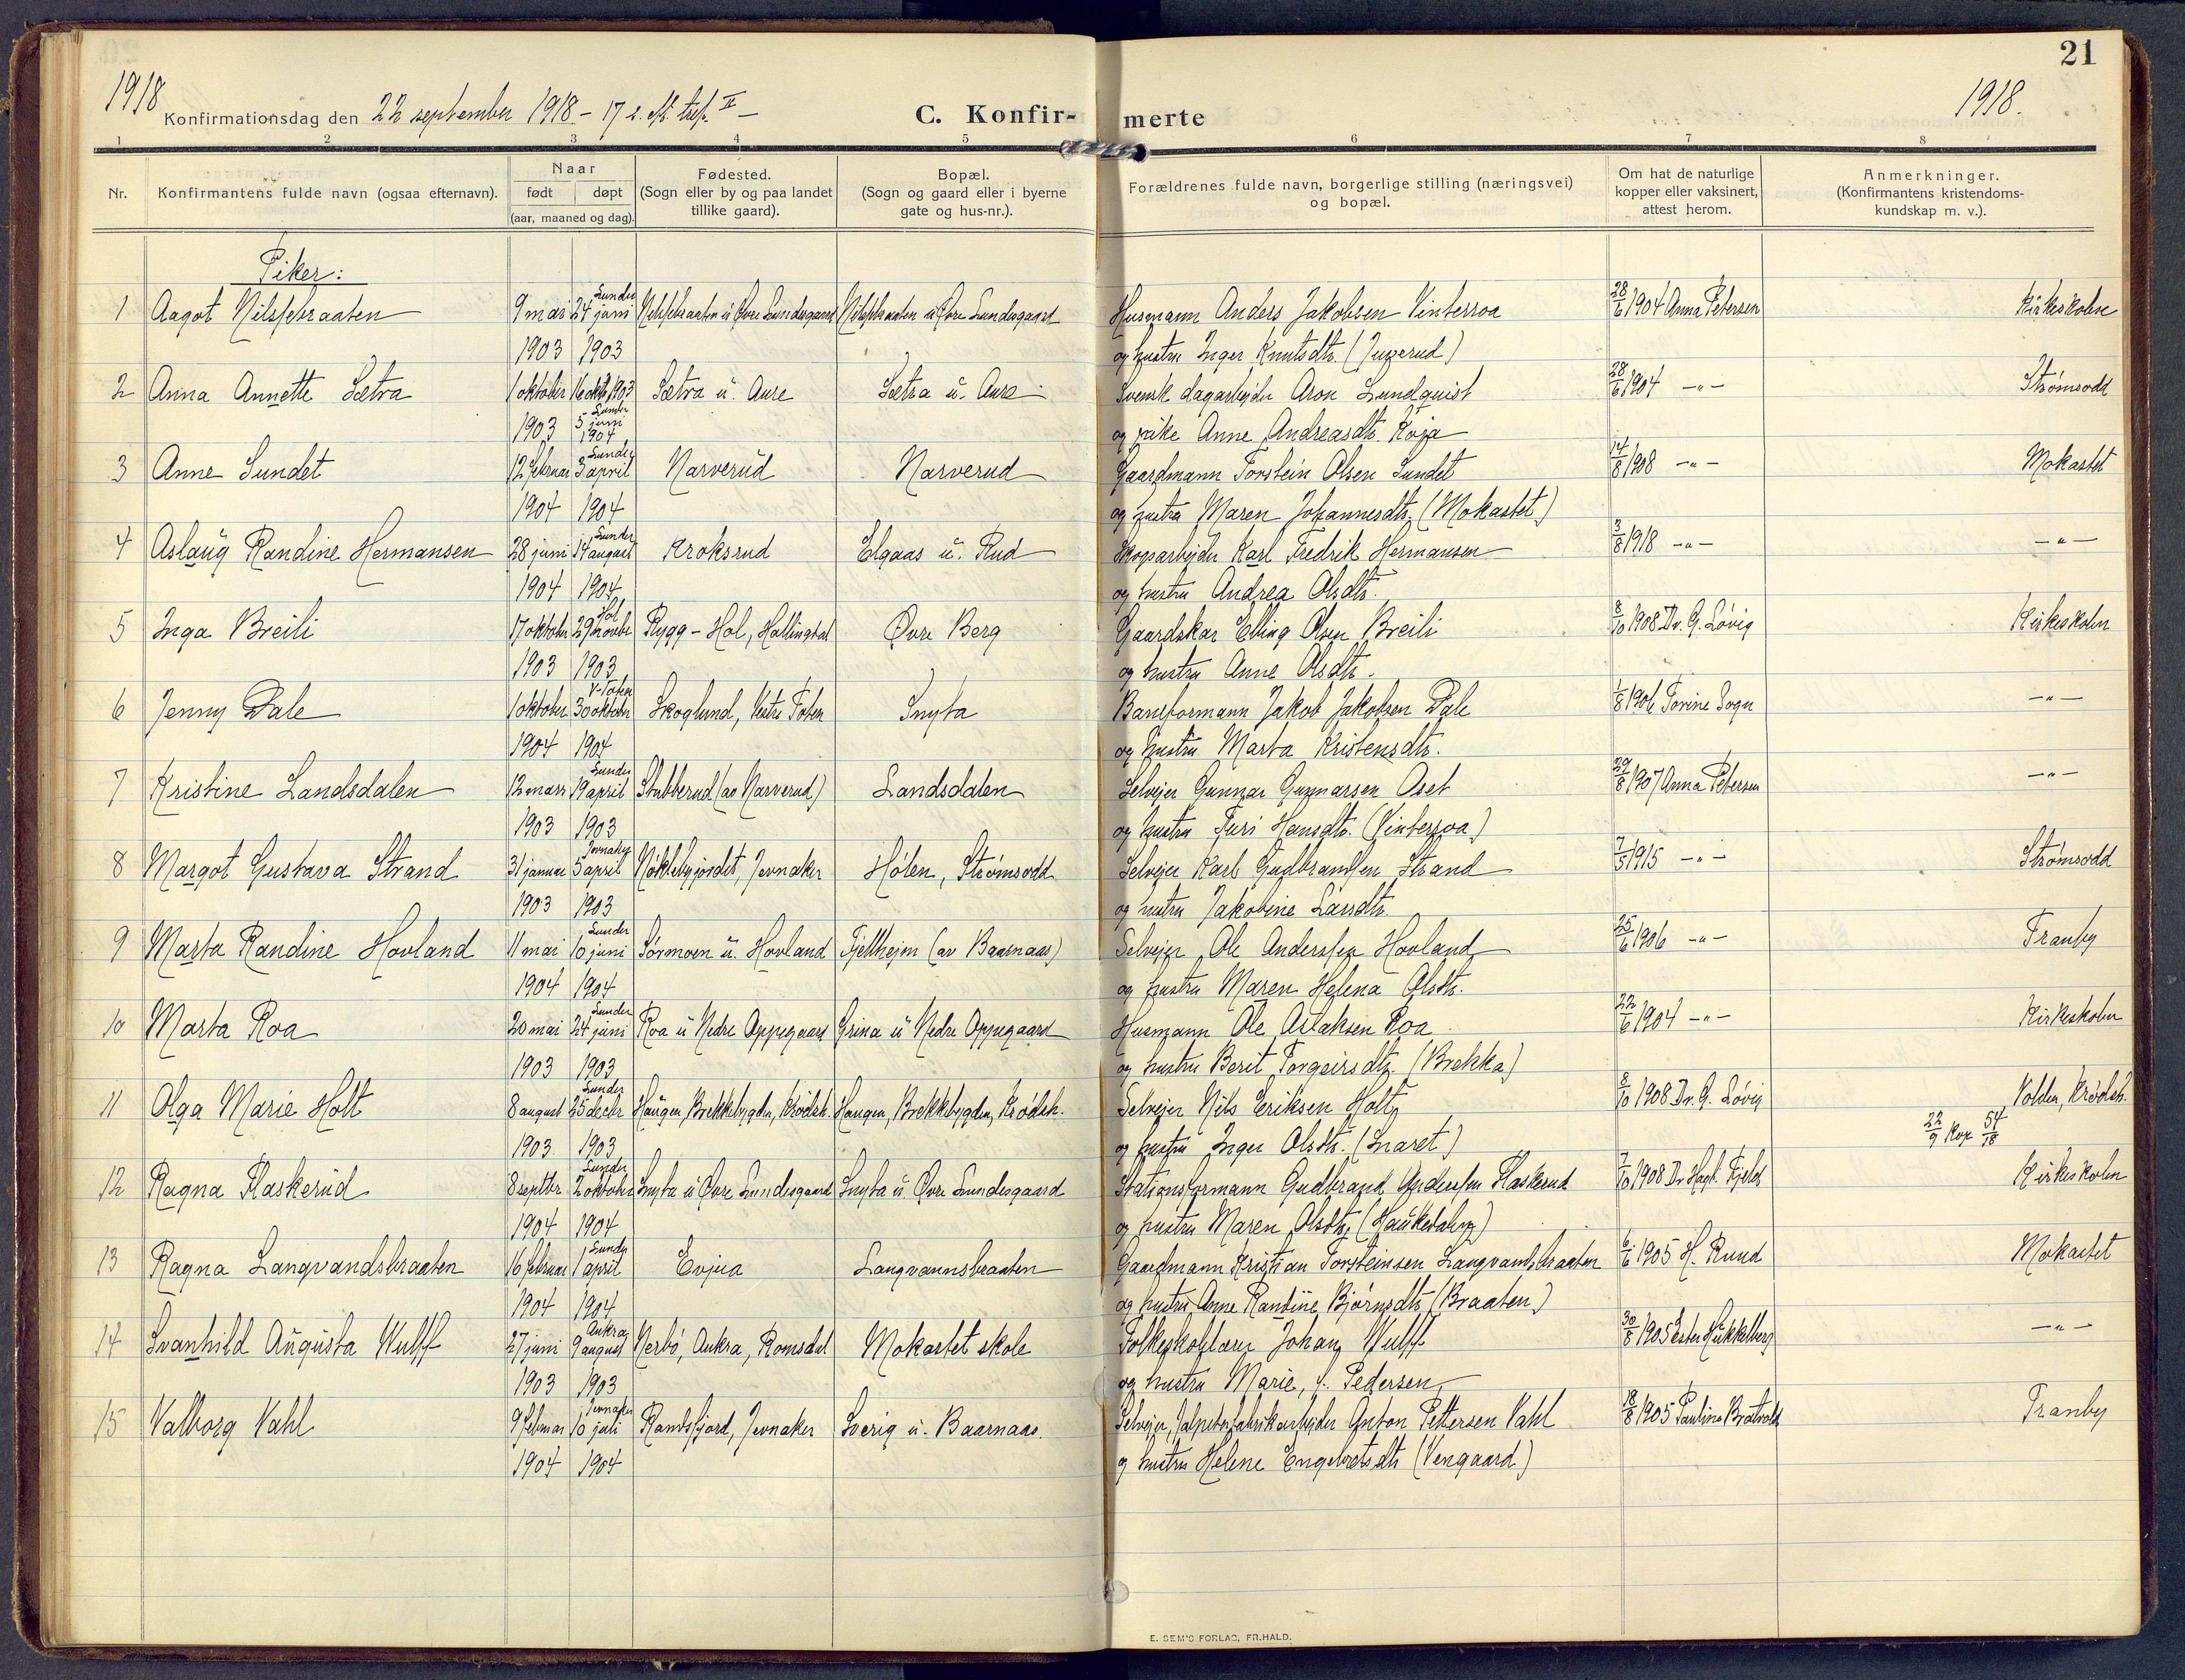 21
1918
Konfirmationsdag den 22 september 1918 - 17 s. eft. tref. II -
C. Konfir- merte
1918.
1 2 3 4 5 6 7 8
Nr.
Konfirmantens fulde navn (ogsaa efternavn).
Naar
født døpt
(aar, maaned og dag).
Fødested.
(Sogn eller by og paa landet
tillike gaard).
Bopæl.
(Sogn og gaard eller i byerne
gate og hus-nr.).
Forældrenes fulde navn, borgerlige stilling (næringsvei)
og bopæl.
Om hat de naturlige
kopper eller vaksinert,
attest herom.
Anmerkninger.
(Konfirmantens kristendoms-
kundskap m. v.).
Piker:
1 Aagot Nilsebraaten 9 mai 24 juni Lunder Nilsebraaten u. Øvre Lundesgaard Nilsebraaten u. Øvre Lundesgaard Husmann Anders Jakobsen Vinterroa 28/6 1904 Anna Petersen Kirkeskolen
1903 1903 og hustru Inger Knutsdtr.
2 Anna Annette Sætra 1 oktober 16 oktb 1903 Sætra u. Aure Sætra u. Aure Svensk dagarbejder Aron Lundquist 28/6 1904 -"- Strømsodd
1903 Lunder 5 juni 1904 og pike Anne Andreasdtr. Roja
3 Anne Sundet 12 februar 3 april Lunder Narverud Narverud Gaardmann Torstein Olsen Sundet 14/8 1908 -"- Mokastet
1904 1904 og hustru Maren Johannesdtr. (Mokastet)
4 Aslaug Randine Hermansen 28 juni 14 august Lunder Kroksrud Elgaas u. Rud Skogsarbejder Karl Fredrik Hermansen 3/8 1918 -"- -"-
1904 1904 og hustru Andrea Olsdtr.
5 Inga Breili 17 oktober 29 novbr Hol Rygg - Hol, Hallingdal Øvre Berg Gaardskar Elling Olsen Breili 8/10 1908 Dr. G. Løvig Kirkeskolen
1903 1903 og hustru Anne Olsdtr.
6 Jenny Dale 1 oktober 30 oktober V-Toten Skoglund, Vestre Toten Snyta Baneformann Jakob Jakobsen Dale 1/8 1906 Torine Sogn -"-
1904 1904 og hustru Marta Kristensdtr.
7 Kristine Landsdalen 12 mars 19 april Lunder Stubberud (av Narverud) Landsdalen Selvejer Gunnar Gunnarsen Oset 29/8 1907 Anna Petersen -"-
1903 1903 og hustru Turi Hansdtr. (Vinterroa)
8 Margot Gustava Strand 31 januar 5 april Jevnaker Nøklebyjordet, Jevnaker Hølen, Strømsodd Selvejer Karl Gudbrandsen Strand 7/5 1915 -"- Strømsodd
1903 1903 og hustru Jakobine Larsdtr.
9 Marta Randine Hovland 11 mai 10 juni Lunder Sørmoen u. Hovland Fjellheim (av Baarnaas) Selvejer Ole Andersen Hovland 25/6 1906 -"- Tranby
1904 1904 og hustru Maren Helena Olsdtr.
10 Marta Roa 20 mai 24 juni Lunder Roa u Nedre Oppegaard Grina u Nedre Oppegaard Husmann Ole Aslaksen Roa 22/6 1904 -"- Kirkeskolen
1903 1903 og hustru Berit Torgeirsdtr. (Brekka)
11 Olga Marie Holt 8 august 25 decbr Lunder Haugen, Brekkebygden, Krødsh. Haugen, Brekkbygden, Krødsh. Selvejer Nils Eriksen Holt 8/10 1908 Dr. G. Løvig Volden, Krødsh.
1903 1903 og hustru Inger Olsdtr. (Snaret) 22/9 Kop 54/18
12 Ragna Flaskerud 8 septbr 2 oktober Lunder Snyta u Øvre Lundesgaard Snyta u. Øvre Lundesgaard Stationsformann Gudbrand Andersen Flaskerud 7/10 1908 Dr Hagb. Fjeld Kirkeskolen
1904 1904 og hustru Maren Olsdtr. (Haukedalen)
13 Ragna Langvandsbraaten 16 februar 1 april Lunder Evjua Langvannsbraaten Gaardmann Kristian Torsteinsen Langvandsbraaten 6/6 1905 H. Rund Mokastet
1904 1904 og hustru Anne Randine Bjørnsdtr. (Braaten)
14 Svanhild Augusta Wulff 27 juni 9 august Aukra Nerbø, Aukra, Romsdal Mokastet skole Folkeskolelærer Johan Wulff 30/8 1905 Ester Hukkelberg -"-
1903 1903 og hustru Marie, f. Pedersen
15 Valborg Vahl 9 februar 10 juli Jevnaker Randsfjord, Jevnaker Sverig u. Baarnaas. Selvejer, salpeterfabrikarbejder Anton Pettersen Vahl 18/8 1905 Pauline Bratvold Tranby
1904 1904 og hustru Helene Engebretsdtr (Vengaard)
E. SEM'S FORLAG, FR.HALD.